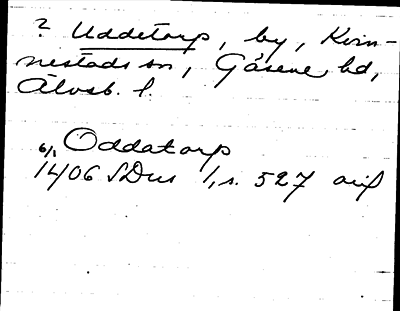 ? Uddetorp, by, Kvin-
nestads sn, Gäsene hd,
Älvsb. l.
6/1 Oddatorp
1406 SDns 1, s. 527 avs